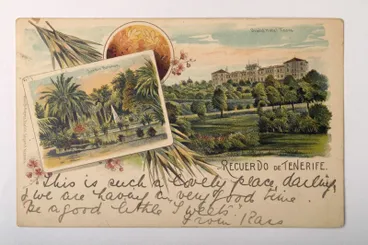 RECUERDO DE TENERIFE.
This is such a lovely place, darling
& we are having a very good time.
Be a good little
From